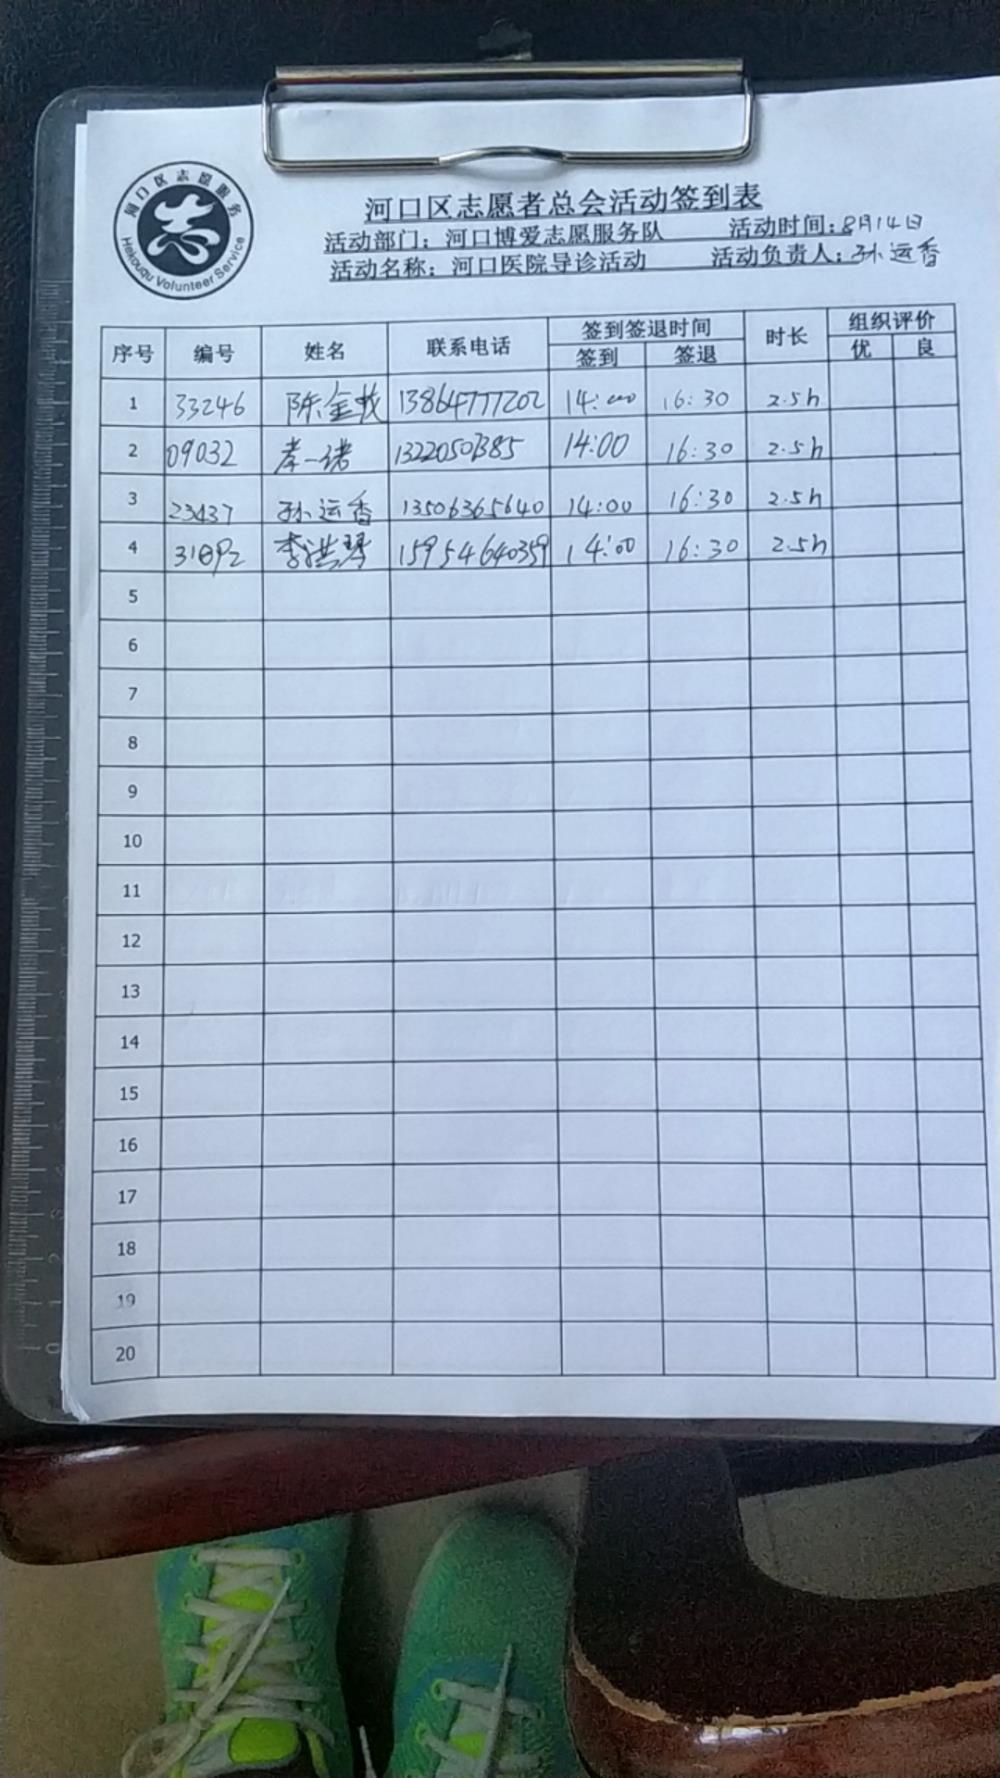 河口区志愿服务
Hekouqu Volunteer Service
河口区志愿者总会活动签到表
活动部门：河口博爱志愿服务队 活动时间：8月14日
活动名称：河口医院导诊活动 活动负责人：孙运香
序号 编号 姓名 联系电话 签到签退时间 时长 组织评价
签到 签退 优 良
1 33246 陈金牧 13864777202 14:00 16:30 2.5h
2 09032 一诺 13220501385 14:00 16:30 2.5h
3 23437 孙运香 13506365640 14:00 16:30 2.5h
4 李洪琴 15954640359 14:00 16:30 2.5h
5
6
7
8
9
10
11
12
13
14
15
16
17
18
19
20